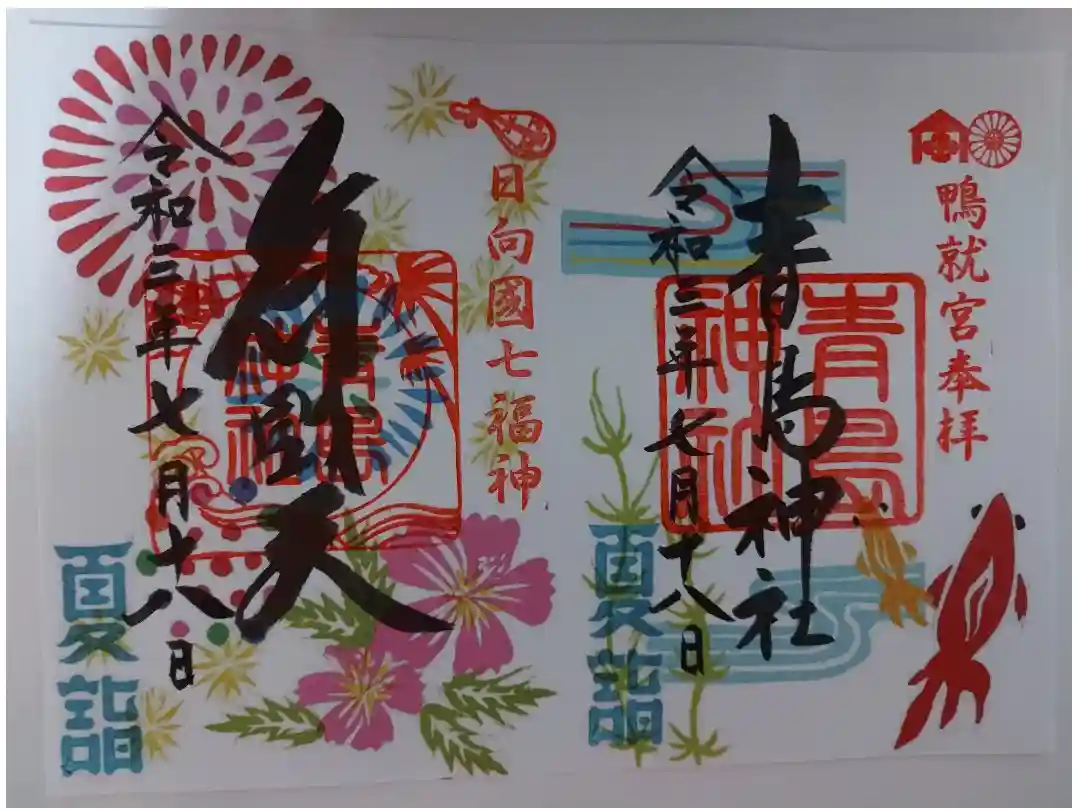 鴨就宮奉拝
青島神社
青島
神社
令和三年七月十八日
夏詣
日向國七福神
弁財天
青島
神社
令和三年七月十八日
夏詣